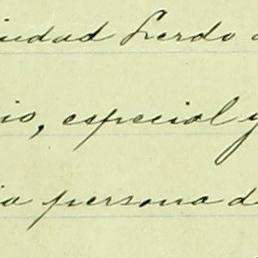 iudad Lerdo
io, especial y
ia persona d